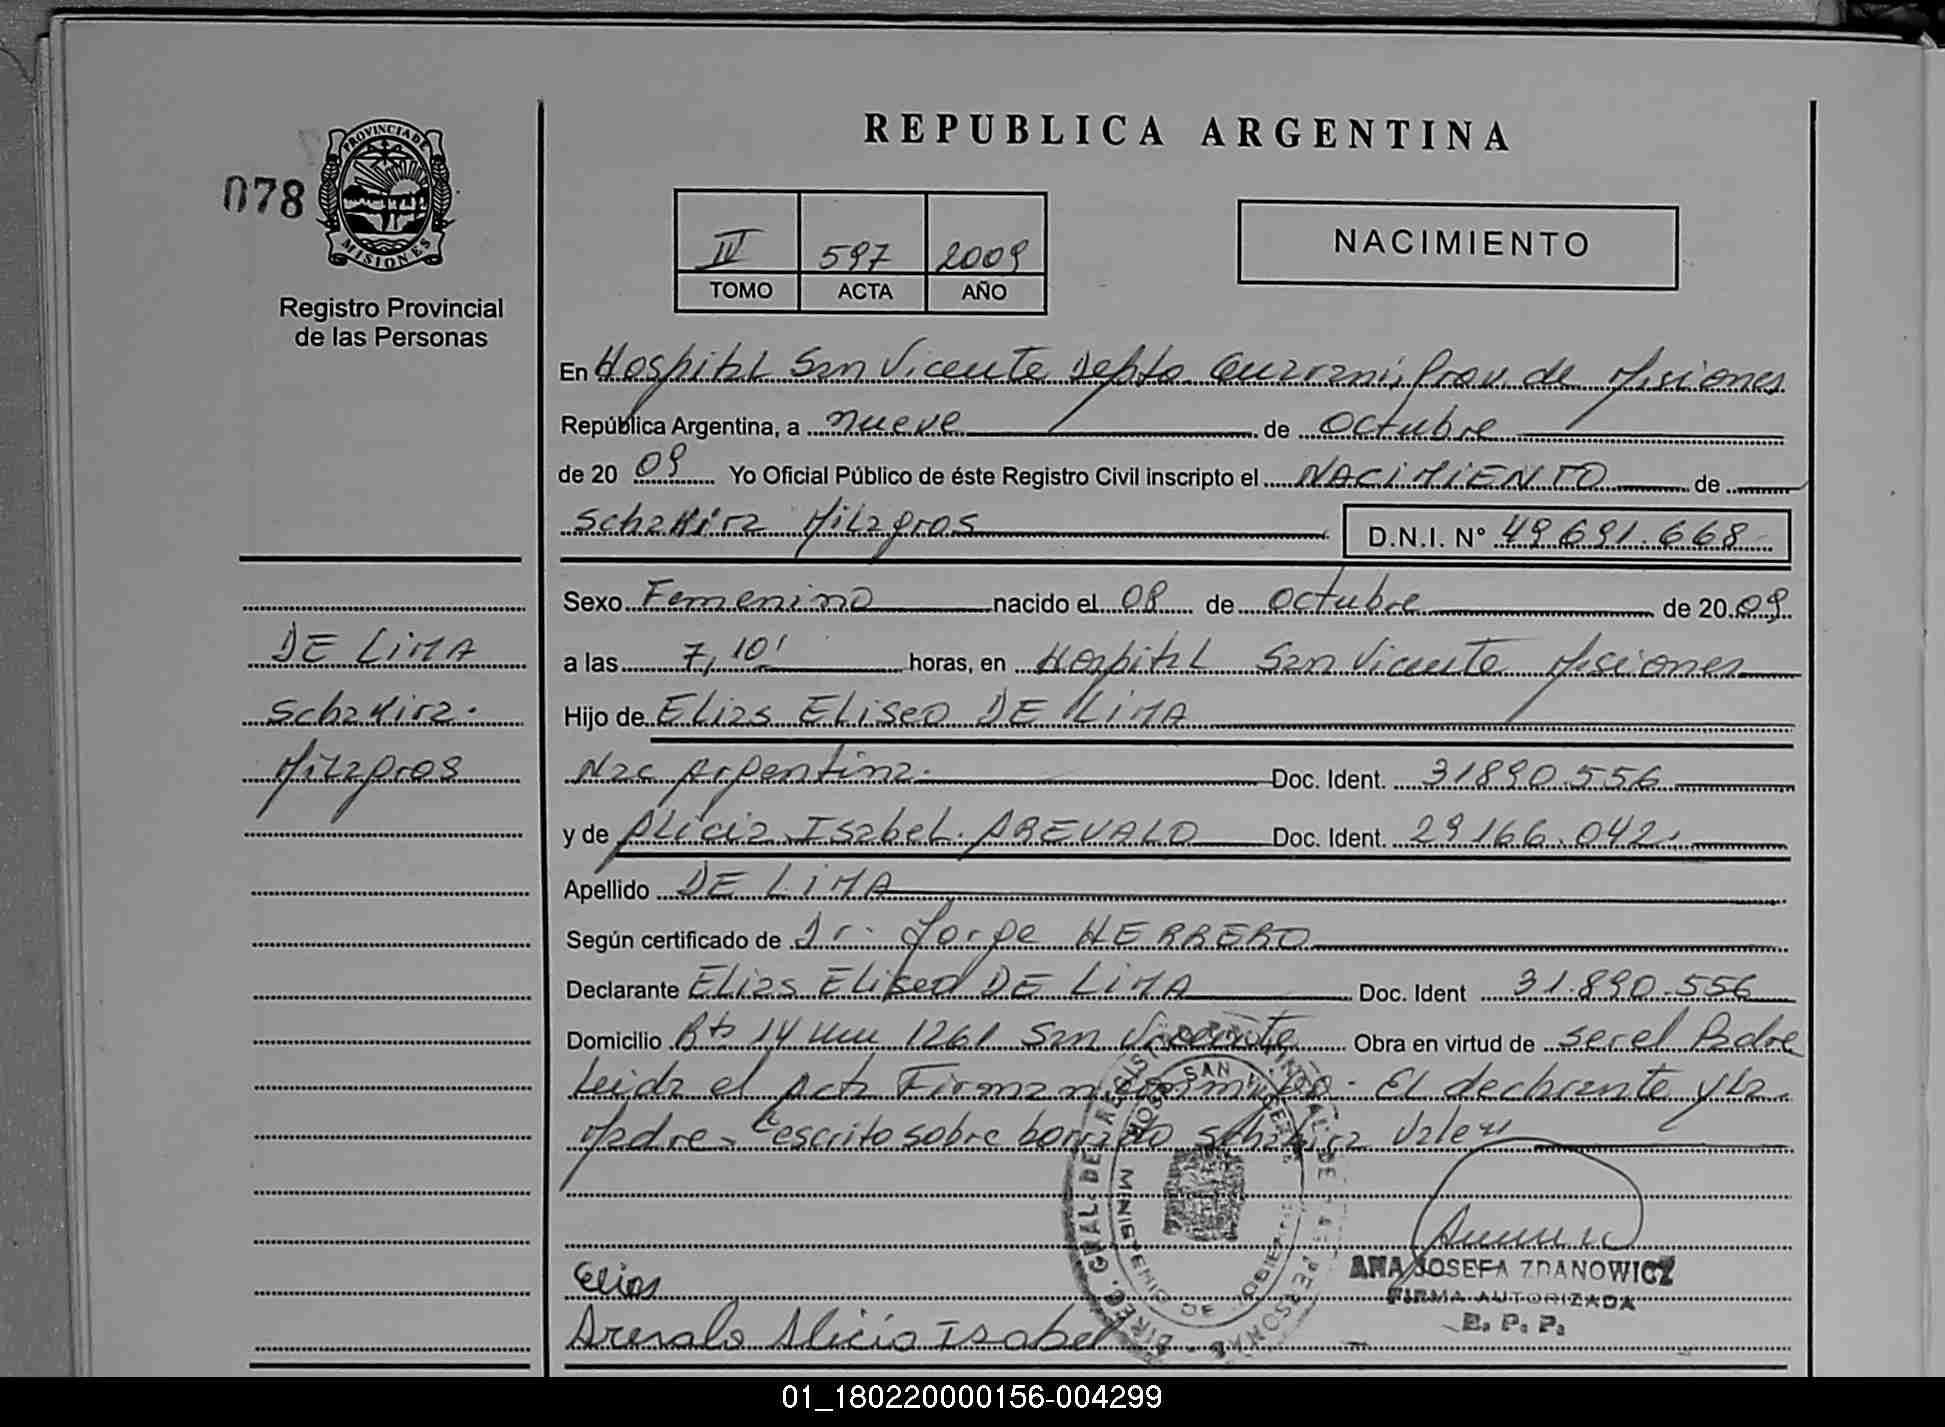 REPUBLICA ARGENTINA
078
PROVINCIA DE
MISIONES
Registro Provincial
de las Personas
IV 597 2009
TOMO ACTA AÑO
NACIMIENTO
En Hospital San Vicente Depto Guarani, Prov. de Misiones
República Argentina, a nueve de Octubre
de 20 09 Yo Oficial Público de éste Registro Civil inscripto el NACIMIENTO de
Schakira Milagros D.N.I. N° 49691.668
Sexo Femenino nacido el 08 de Octubre de 20 09
a las 7,10' horas, en Hospital San Vicente Misiones
Hijo de Elias Eliseo DE LIMA
Nac Argentina. Doc. Ident. 31890.556
y de Alicia Isabel. AREVALO Doc. Ident. 29166.042.
Apellido DE LIMA
Según certificado de Dr. Jorge HERRERO
Declarante Elias Eliseo DE LIMA Doc. Ident 31.890.556
Domicilio 14 1261 San Vicente Obra en virtud de ser el Padre
Leida el Acta Firman conmigo. El declarante y la
Madre - escrito sobre borrado Schakira Vale
DE LIMA
Schakira.
Milagros
Elias
Arevalo Alicia Isabel
DIREC. GRAL. DEL REGISTRO PROVINCIAL DE LAS PERSONAS
HOSP. SAN VICENTE
MINISTERIO DE GOBIERNO
ANA JOSEFA ZDANOWICZ
FIRMA AUTORIZADA
R. P. P.
01_180220000156-004299